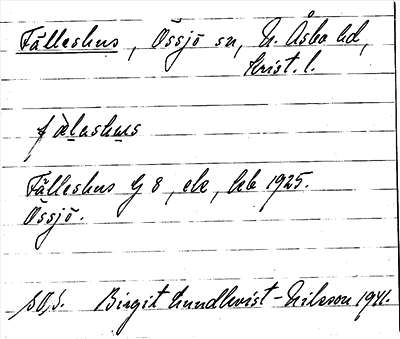 Fälleshus, Össjö sn, N. Åsbo hd,
Krist. l.
fäleshus
Fälleshus G 8, ek, kb 1925.
Össjö.
Birgit Lundkvist-Nilsson 1941.